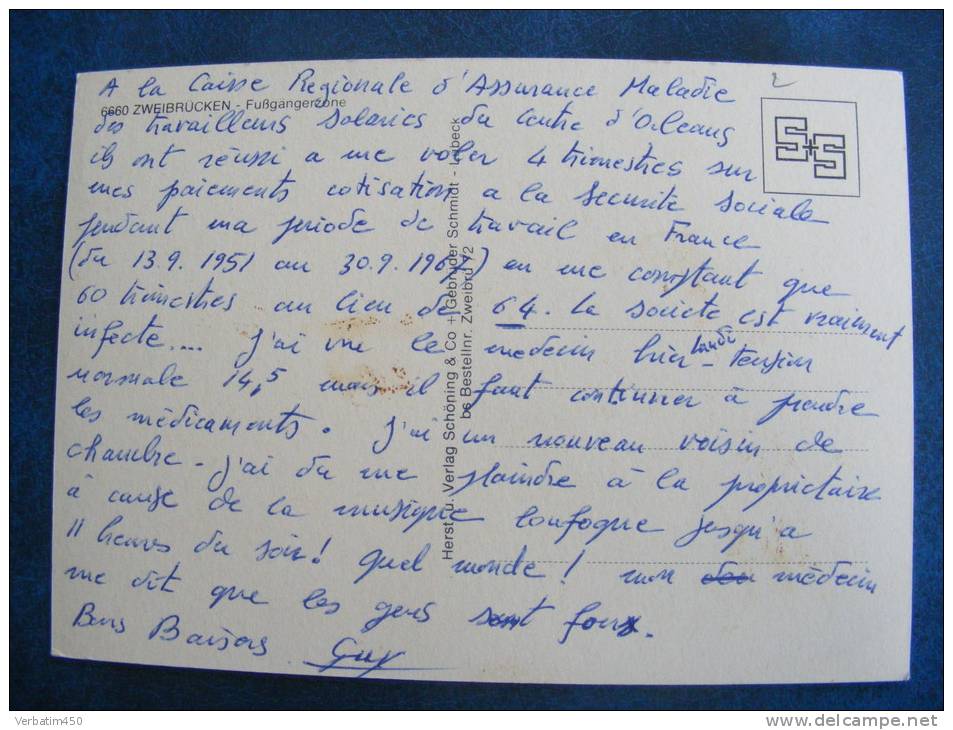 2
A la Caisse Regionale d'Assurance Maladie
6660 ZWEIBRÜCKEN - Fußgängerzone
des travailleurs salariés du Centre d'Orleans
ils ont réussi a me voler 4 trimestres sur
mes paiements cotisation a la securite sociale
pendant ma periode de travail en France
(du 13.9.1951 au 30.9.1967) en me comptant que
60 trimestres au lieu de 64. la societe est vraiment
infecte.... j'ai vu le medecin hier - tension
normale 14,5 mais il faut continuer à prendre
les médicaments. j'ai un nouveau voisin de
chambre - j'ai du me plaindre à la propriétaire
à cause de la musique loufoque jusqu'a
11 heures du soir! quel monde! mon médecin
me dit que les gens sont fous.
Bons Baisers Guy
Herst. u. Verlag Schöning & Co + Gebrüder Schmidt - Lübeck
bs Bestellnr. Zweibrü 72
S+S
Verbatim450
www.delcampe.net